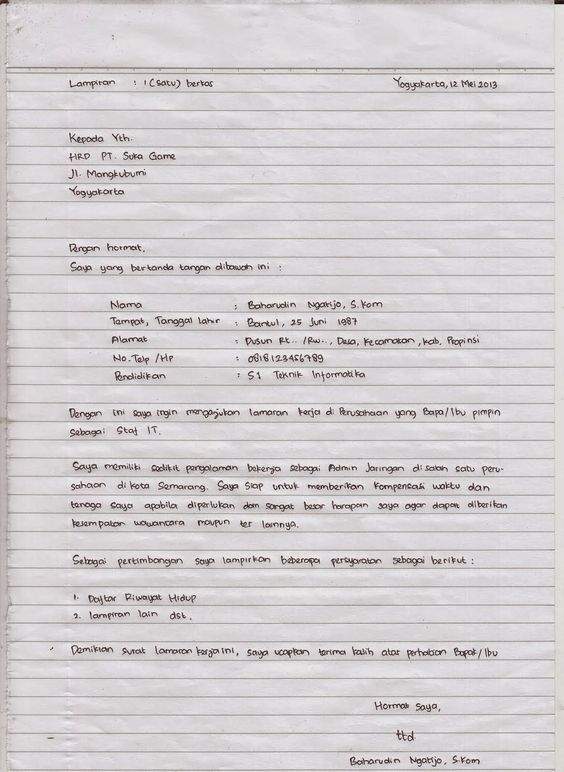 Lampiran : 1 (Satu) berkas Yogyakarta, 12 Mei 2013
Kepada Yth.
HRD PT. Suka Game
Jl. Mangkubumi
Yogyakarta
Dengan hormat,
Saya yang bertanda tangan dibawah ini :
Nama : Baharudin Ngatijo, S.Kom
Tempat, Tanggal lahir : Bantul, 25 Juni 1987
Alamat : Dusun Rt.. /Rw.., Desa, Kecamatan, Kab, Propinsi
No. Telp /HP : 0818123456789
Pendidikan : S1 Teknik Informatika
Dengan ini saya ingin mengajukan lamaran kerja di Perusahaan yang Bapa/Ibu pimpin
sebagai Staf IT.
Saya memiliki sedikit pengalaman bekerja sebagai Admin Jaringan di salah satu peru-
sahaan di kota Semarang. Saya Siap untuk memberikan kompensasi waktu dan
tenaga saya apabila diperlukan dan sangat besar harapan saya agar dapat diberikan
kesempatan wawancara maupun tes lainnya.
Sebagai pertimbangan saya lampirkan beberapa persyaratan sebagai berikut :
1. Daftar Riwayat Hidup
2. lampiran lain dst.
Demikian surat lamaran kerja ini, saya ucapkan terima kasih atas perhatian Bapak/Ibu
Hormat Saya,
ttd
Baharudin Ngatijo, S.Kom